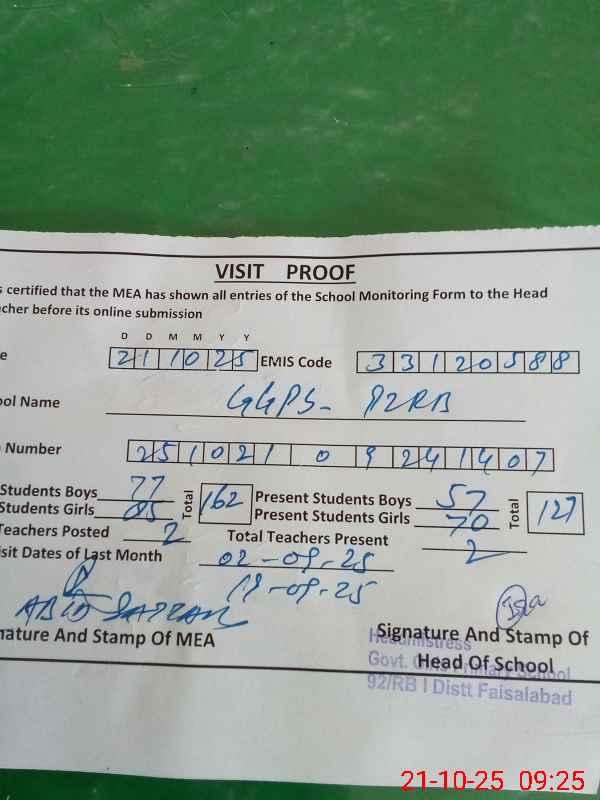 VISIT PROOF
s certified that the MEA has shown all entries of the School Monitoring Form to the Head
cher before its online submission
D D M M Y Y
e 21 10 25 EMIS Code 33120588
ool Name GGPS-
Number 251021 0 9241407
Students Boys 77 Total 162 Present Students Boys 57 Total 127
Students Girls 85 Present Students Girls 70
Teachers Posted 2 Total Teachers Present 2
isit Dates of Last Month 02-09-25
-09-25
ABID
nature And Stamp Of MEA
Signature And Stamp Of
Head Of School
Headmistress
Govt. Girls Primary School
92/RB I Distt Faisalabad
21-10-25 09:25